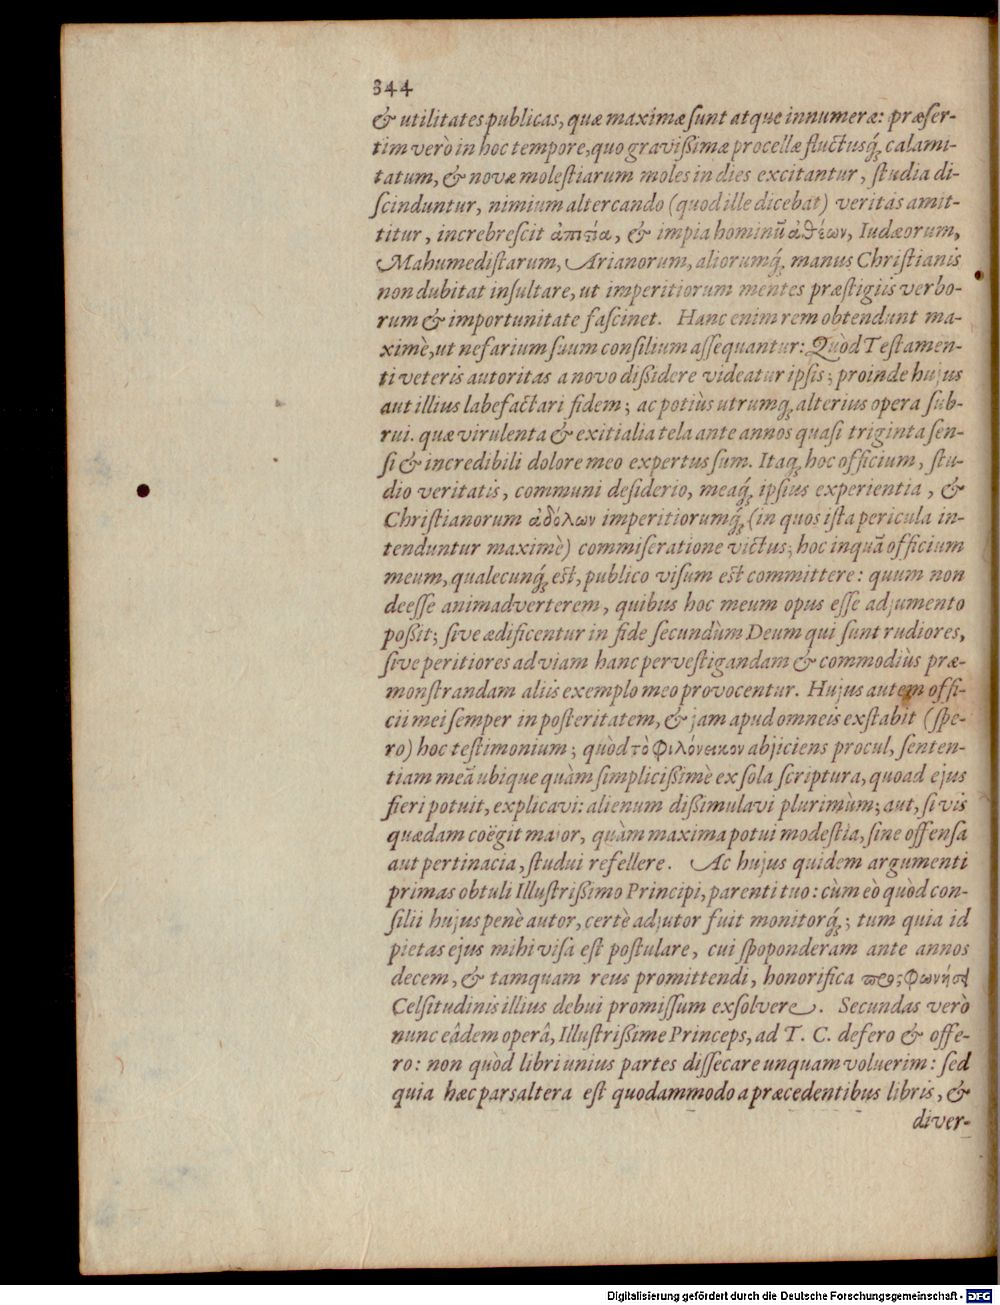 344
& utilitates publicas, quæ maximæ ſunt atque innumeræ: præſer-
tim verò in hoc tempore, quo gravißimæ procellæ fluctusq́; calami-
tatum, & novæ moleſtiarum moles in dies excitantur, ſtudia di-
ſcinduntur, nimium altercando (quod ille dicebat) veritas amit-
titur, increbreſcit ἀπιςία, & impia hominũ ἀθέων, Iudæorum,
Mahumediſtarum, Arianorum, aliorumq́; manus Chriſtianis
non dubitat inſultare, ut imperitiorum mentes præſtigiis verbo-
rum & importunitate faſcinet. Hanc enim rem obtendunt ma-
ximè, ut nefarium ſuum conſilium aſſequantur: Quòd Teſtamen-
ti veteris autoritas a novo dißidere videatur ipſis; proinde hujus
aut illius labefactari fidem; ac potiùs utrumq; alterius opera ſub-
rui. quæ virulenta & exitialia tela ante annos quaſi triginta ſen-
ſi & incredibili dolore meo expertus ſum. Itaq; hoc officium, ſtu-
dio veritatis, communi deſiderio, meaq́; ipſius experientia, &
Chriſtianorum ἀδόλων imperitiorumq́; (in quos iſta pericula in-
tenduntur maximè) commiſeratione victus; hoc inquã officium
meum, qualecunq́; eſt, publico viſum eſt committere: quum non
deeſſe animadverterem, quibus hoc meum opus eſſe adjumento
poßit; ſive ædificentur in fide ſecundùm Deum qui ſunt rudiores,
ſive peritiores ad viam hanc perveſtigandam & commodiùs præ-
monſtrandam aliis exemplo meo provocentur. Hujus autem offi-
cii mei ſemper in poſteritatem, & jam apud omneis exſtabit (ſpe-
ro) hoc teſtimonium; quòd τὸ φιλόνεικον abjiciens procul, ſenten-
tiam meã ubique quàm ſimplicißimè ex ſola ſcriptura, quoad ejus
fieri potuit, explicavi: alienum dißimulavi plurimùm; aut, ſi vis
quædam coëgit major, quàm maxima potui modeſtia, ſine offenſa
aut pertinacia, ſtudui refellere. Ac hujus quidem argumenti
primas obtuli Illuſtrißimo Principi, parenti tuo: cùm eò quòd con-
ſilii hujus penè autor, certè adjutor fuit monitorq́;; tum quia id
pietas ejus mihi viſa eſt poſtulare, cui ſpoponderam ante annos
decem, & tamquam reus promittendi, honorifica προςφωνήσι
Celſitudinis illius debui promiſſum exſolvere. Secundas verò
nunc eâdem operâ, Illuſtrißime Princeps, ad T. C. defero & offe-
ro: non quòd libri unius partes diſſecare unquam voluerim: ſed
quia hæc pars altera eſt quodammodo a præcedentibus libris, &
diver-
Digitalisierung gefördert durch die Deutsche Forschungsgemeinschaft - DFG